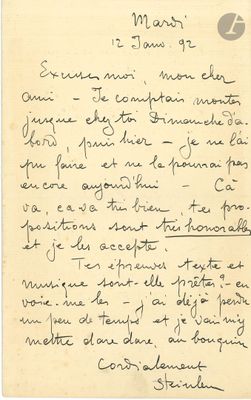 Mardi
12 Janv. 92
Excuses moi, mon cher
ami - Je comptais monter
jusque chez toi Dimanche d'a-
bord, puis hier - je ne l'ai
pu faire et ne le pourrai pas
encore aujourd'hui - Ça
va, ça va très bien tes pro-
positions sont très honorables
et je les accepte.
Tes épreuves texte et
musique sont-elle prêtes? - en
voie-me les - j'ai déjà perdu
un peu de temps et je vais m'y
mettre dare dare, au bouquin
Cordialement
Steinlen